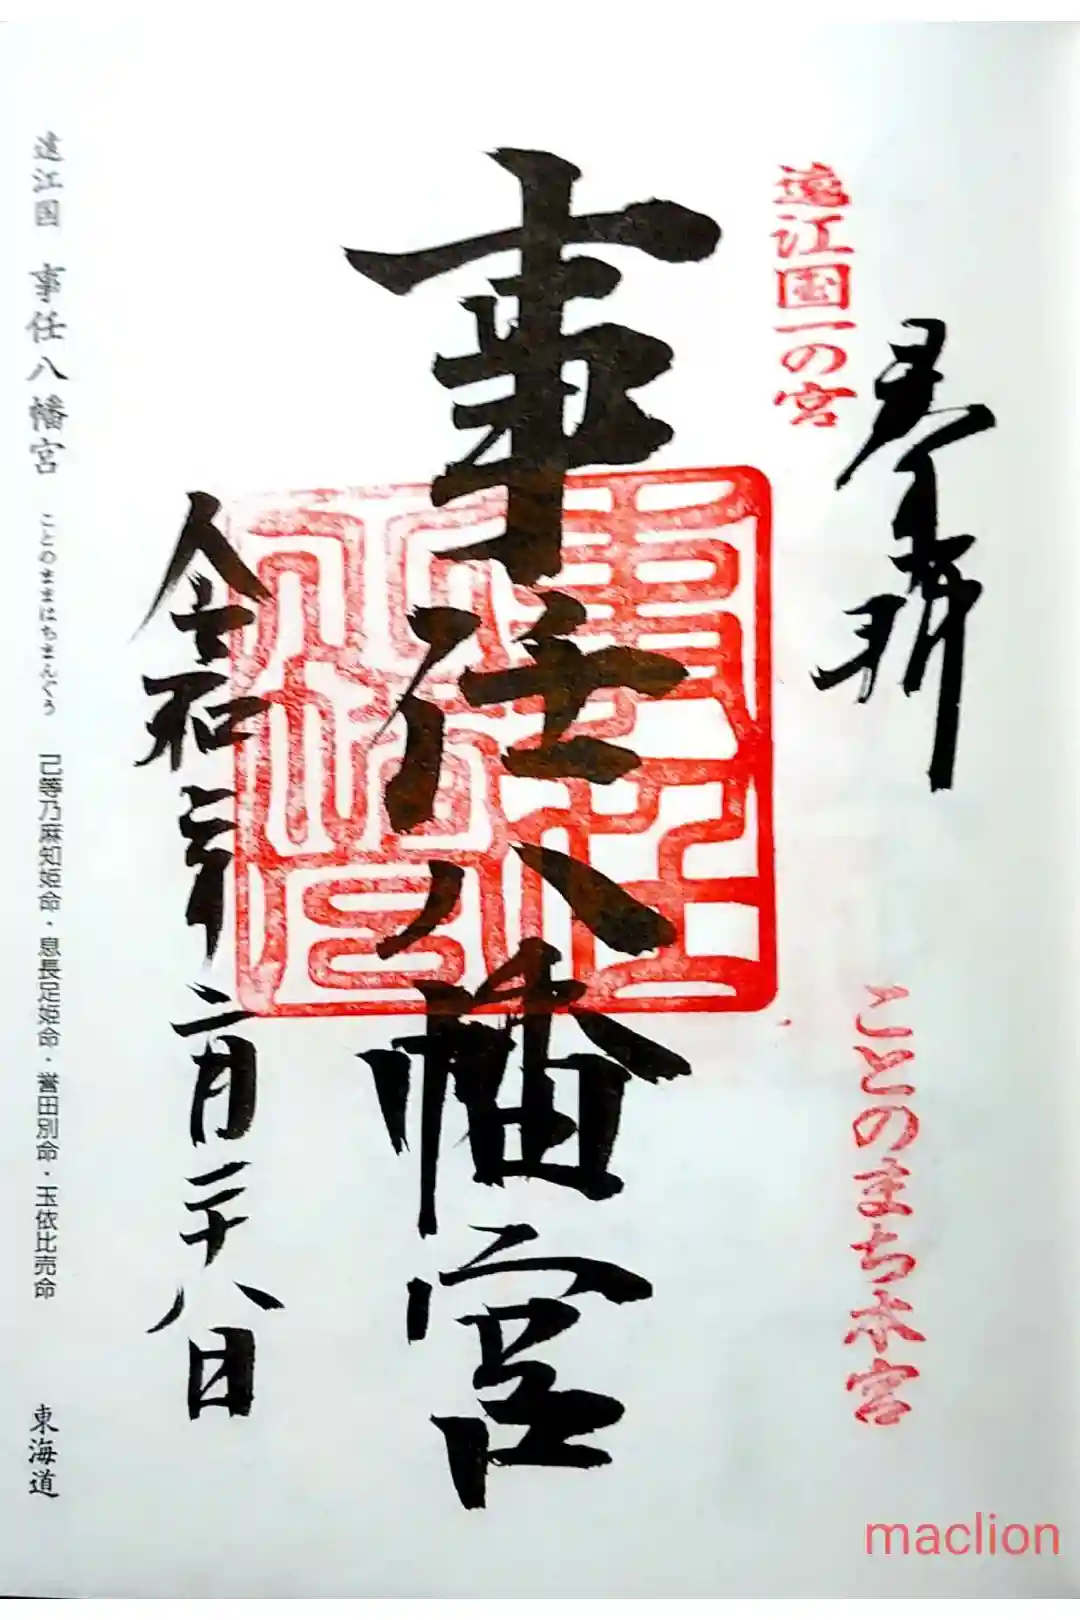 奉拝
遠江国一の宮
ことのまち本宮
事任八幡宮
事任八幡宮
令和二年二月二十八日
遠江国 事任八幡宮 ことのままはちまんぐう 己等乃麻知姫命・息長足姫命・誉田別命・玉依比売命 東海道
maclion